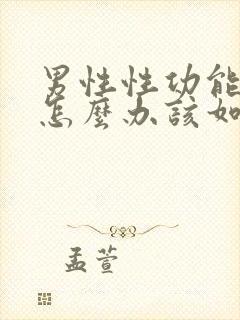 男性性功能
怎麼办該如
孟萱